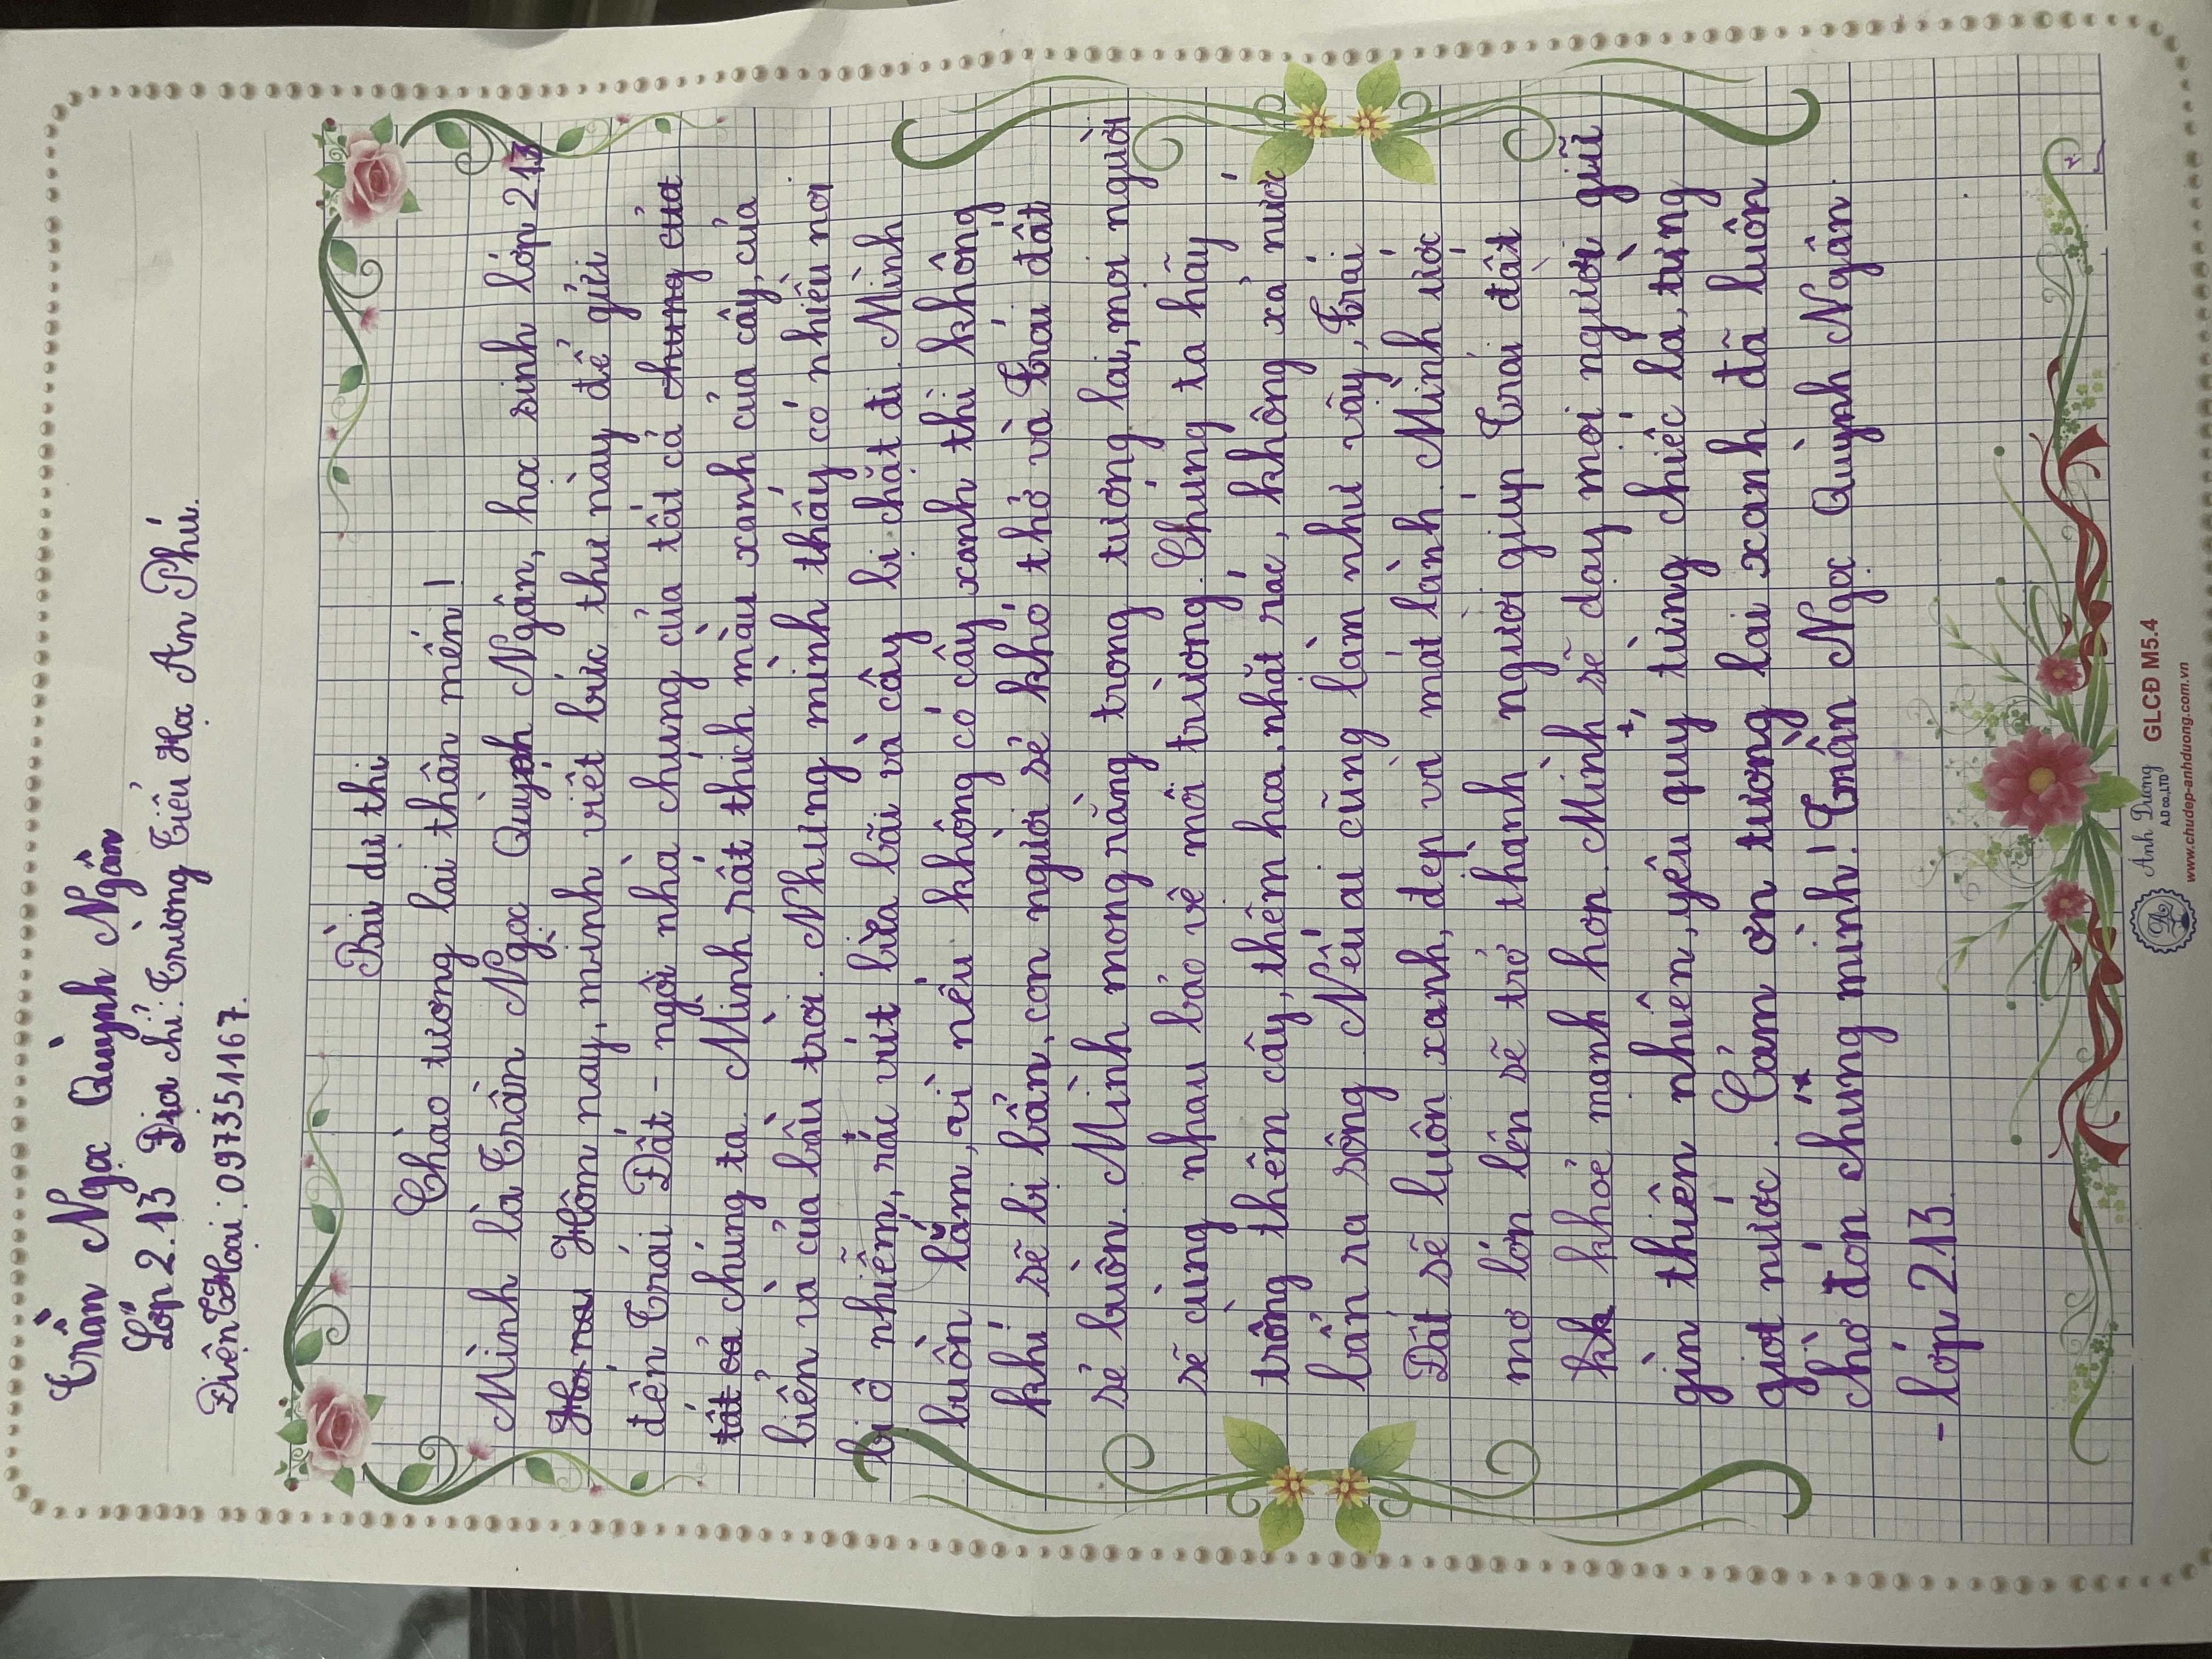 Trần Ngọc Quỳnh Ngân
Lớp 2.13 Địa chỉ: Trường Tiểu Học An Phú.
Điện Thoại: 097351167.
Bài dự thi
Chào tương lai thân mến!
Mình là Trần Ngọc Quỳnh Ngân, học sinh lớp 2 13
Hôm nay, mình viết bức thư này để gửi
đến Trái Đất - ngôi nhà chung của tất cả chung của
tất cả chúng ta. Mình rất thích màu xanh của cây, của
biển và của bầu trời. Nhưng mình thấy có nhiều nơi
bị ô nhiễm, rác vứt bừa bãi và cây bị chặt đi. Mình
buồn lắm, vì nếu không có cây xanh thì không
khí sẽ bị bẩn, con người sẻ khó thở và Trái đất
sẻ buồn. Mình mong rằng trong tương lai, mọi người
sẽ cùng nhau bảo vệ môi trường. Chúng ta hãy
trồng thêm cây, thêm hoa, nhặt rác, không xả nước
bẩn ra sông. Nếu ai cũng làm như vậy, Trái
Đất sẽ luôn xanh, đẹp và mát lành. Mình ước
mơ lớn lên sẽ trở thành người giúp Trái đất
khỏe mạnh hơn. Mình sẽ dạy mọi người giữ
gìn thiên nhiên, yêu quý từng chiếc lá, từng
giọt nước. Cảm ơn tương lai xanh đã luôn
chờ đón chúng mình! Trần Ngọc Quỳnh Ngân.
- lớp 2.13
Ánh Dương GLCĐ M5.4
A.D co.,LTD
www.chudep-anhduong.com.vn